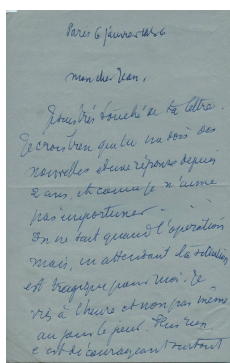 Paris 6 janvier
mon cher Jean,
très touché de ta lettre.
Je crois bien que tu me dois des
nouvelles et une réponse depuis
2 ans, et comme je n'aime
pas importuner
On ne sait quand l'opération
mais, en attendant la situation
est tragique pour moi. Je
vis à l'heure et non pas même
au jour le jour.
c'est décourageant surtout